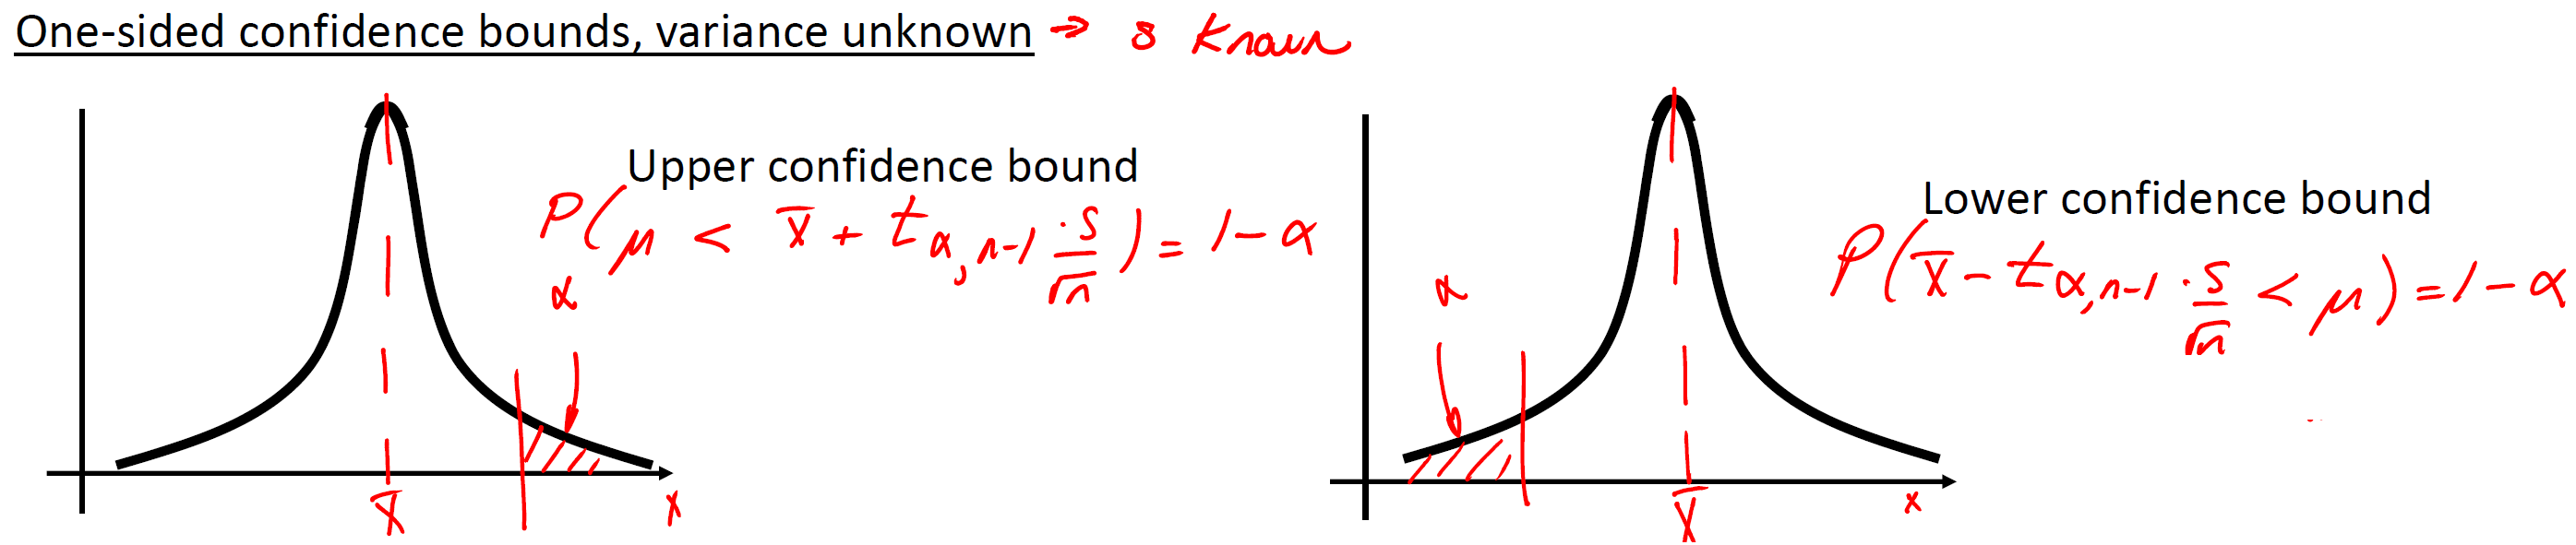 One-sided confidence bounds, variance unknown → s known
Upper confidence bound
P(μ < x̄ + t_{α,n-1} · s/√n) = 1 - α
α
x̄
x
Lower confidence bound
P(x̄ - t_{α,n-1} · s/√n < μ) = 1 - α
α
x̄
x